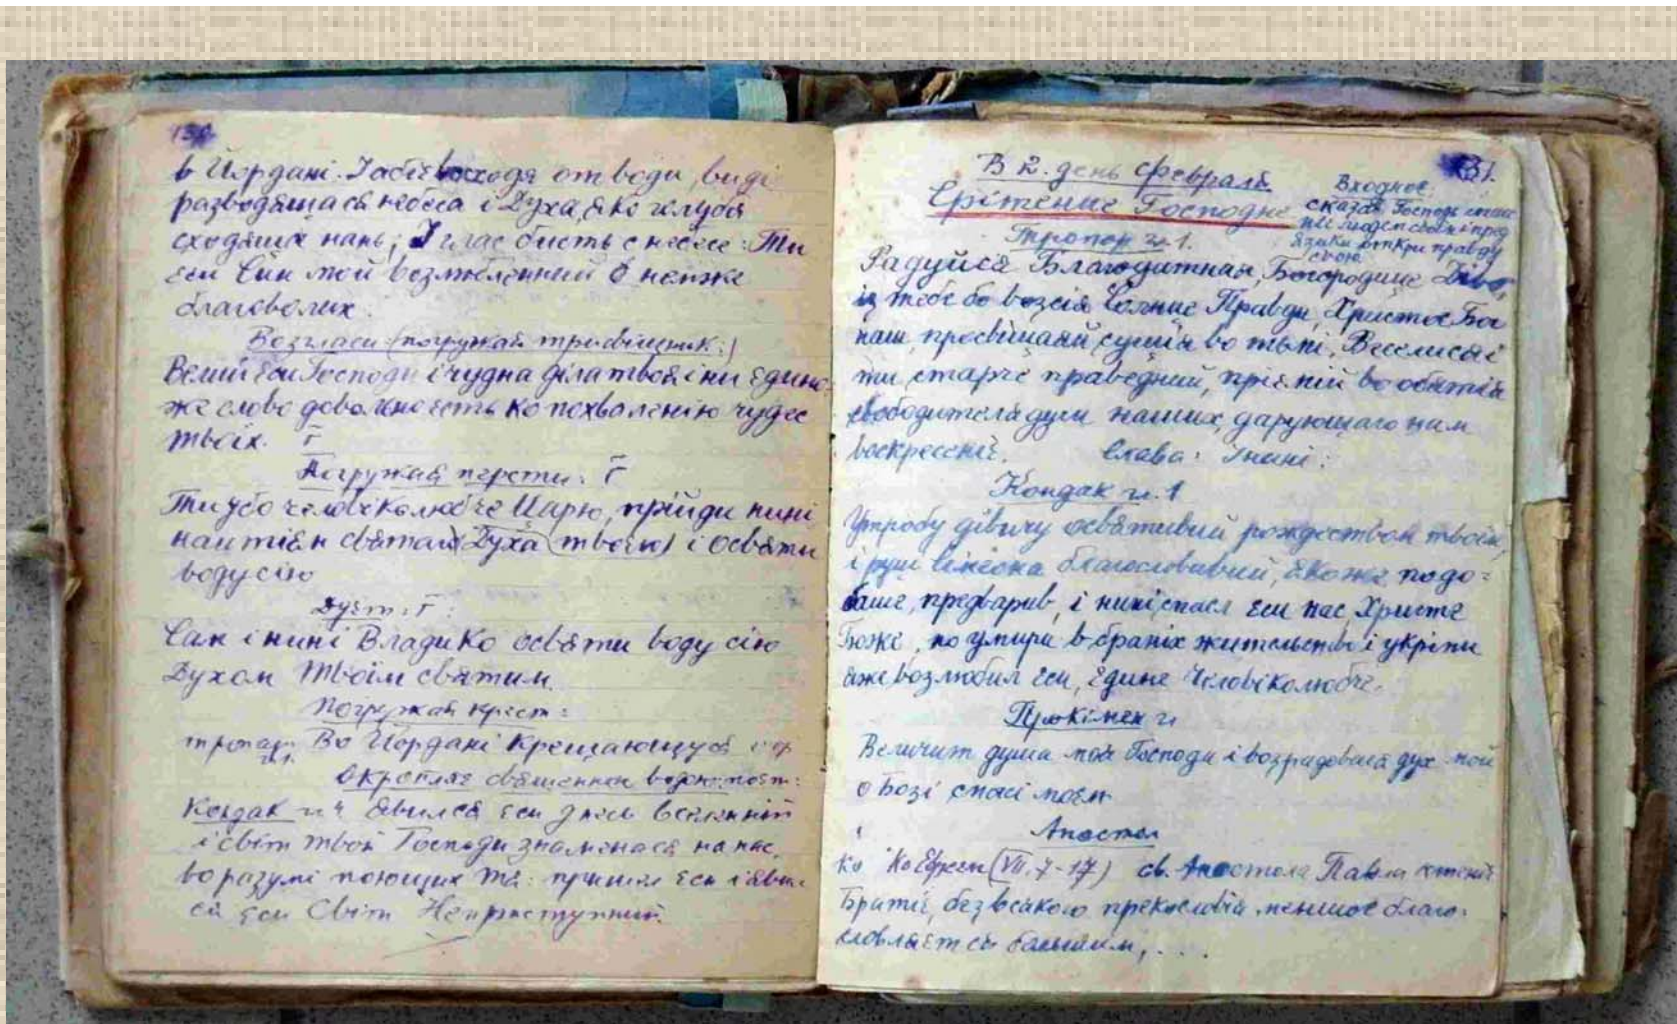 130
в Йордані. І абіє восходя от води, виді
разводящася небеса і Духа, яко голубя
сходящя нань; І глас бисть с небесе: Ти
еси Син мой возлюбленний о немже
благоволих.
Возгласи (погружай тросвіщник:)
Велий єси Господи і чудна діла твоя і ни єдино
же слово довольно єсть ко похваленію чудес
твоїх. г
Погружай персти: г
Ти убо человіколюбче Царю, прійди нині
наитієм святаго Духа (твоєго) і освяти
воду сію
Дуєт: г:
Сам і нині Владико освяти воду сію
Духом Твоїм святим.
Погружай крест:
тропар: Во Йордані Крещающуся
Окропляє священник водою: поєт:
Кондак г. 4 Явился єси днесь вселенній
і світ твой Господи знаменася на нас,
во разумі поющих тя: пришел єси і явил
ся єси Світ Неприступний.
131.
В 2. день февраля
Срітение Господне
Входноє:
сказа Господь спасе
ніє
людем своїм пред
язики откри правду
свою
Тропор г. 1.
Радуйся Благодатная, Богородице Діво,
із тебе бо возсія Солнце Правди, Христос Бог
наш, просвіщаяй сущія во тьмі, Веселися і
ти, старче праведний, пріємий во обятія
свободителя душ наших, дарующаго нам
воскресеніє. Слава: І нині:
Кондак г. 1
Утробу дівичу освятивий рождеством твоїм,
і руці Симеона благословивий, якоже подо-
баше, предварив, і нині спасл єси нас, Христе
Боже, но умири в бранїх жительство і укріпи
яже возлюбил єси, Єдине Человіколюбче.
Прокімен г.
Величит душа моя Господи і возрадовася дух мой
о Бозі спасі моєм
Апостол
Ко Ко Євреєм (VII. 7-17) св. Апостола Павла чтеніє
Братіє, без всякого прекословія меншоє благо-
словляєтся большим, . . .